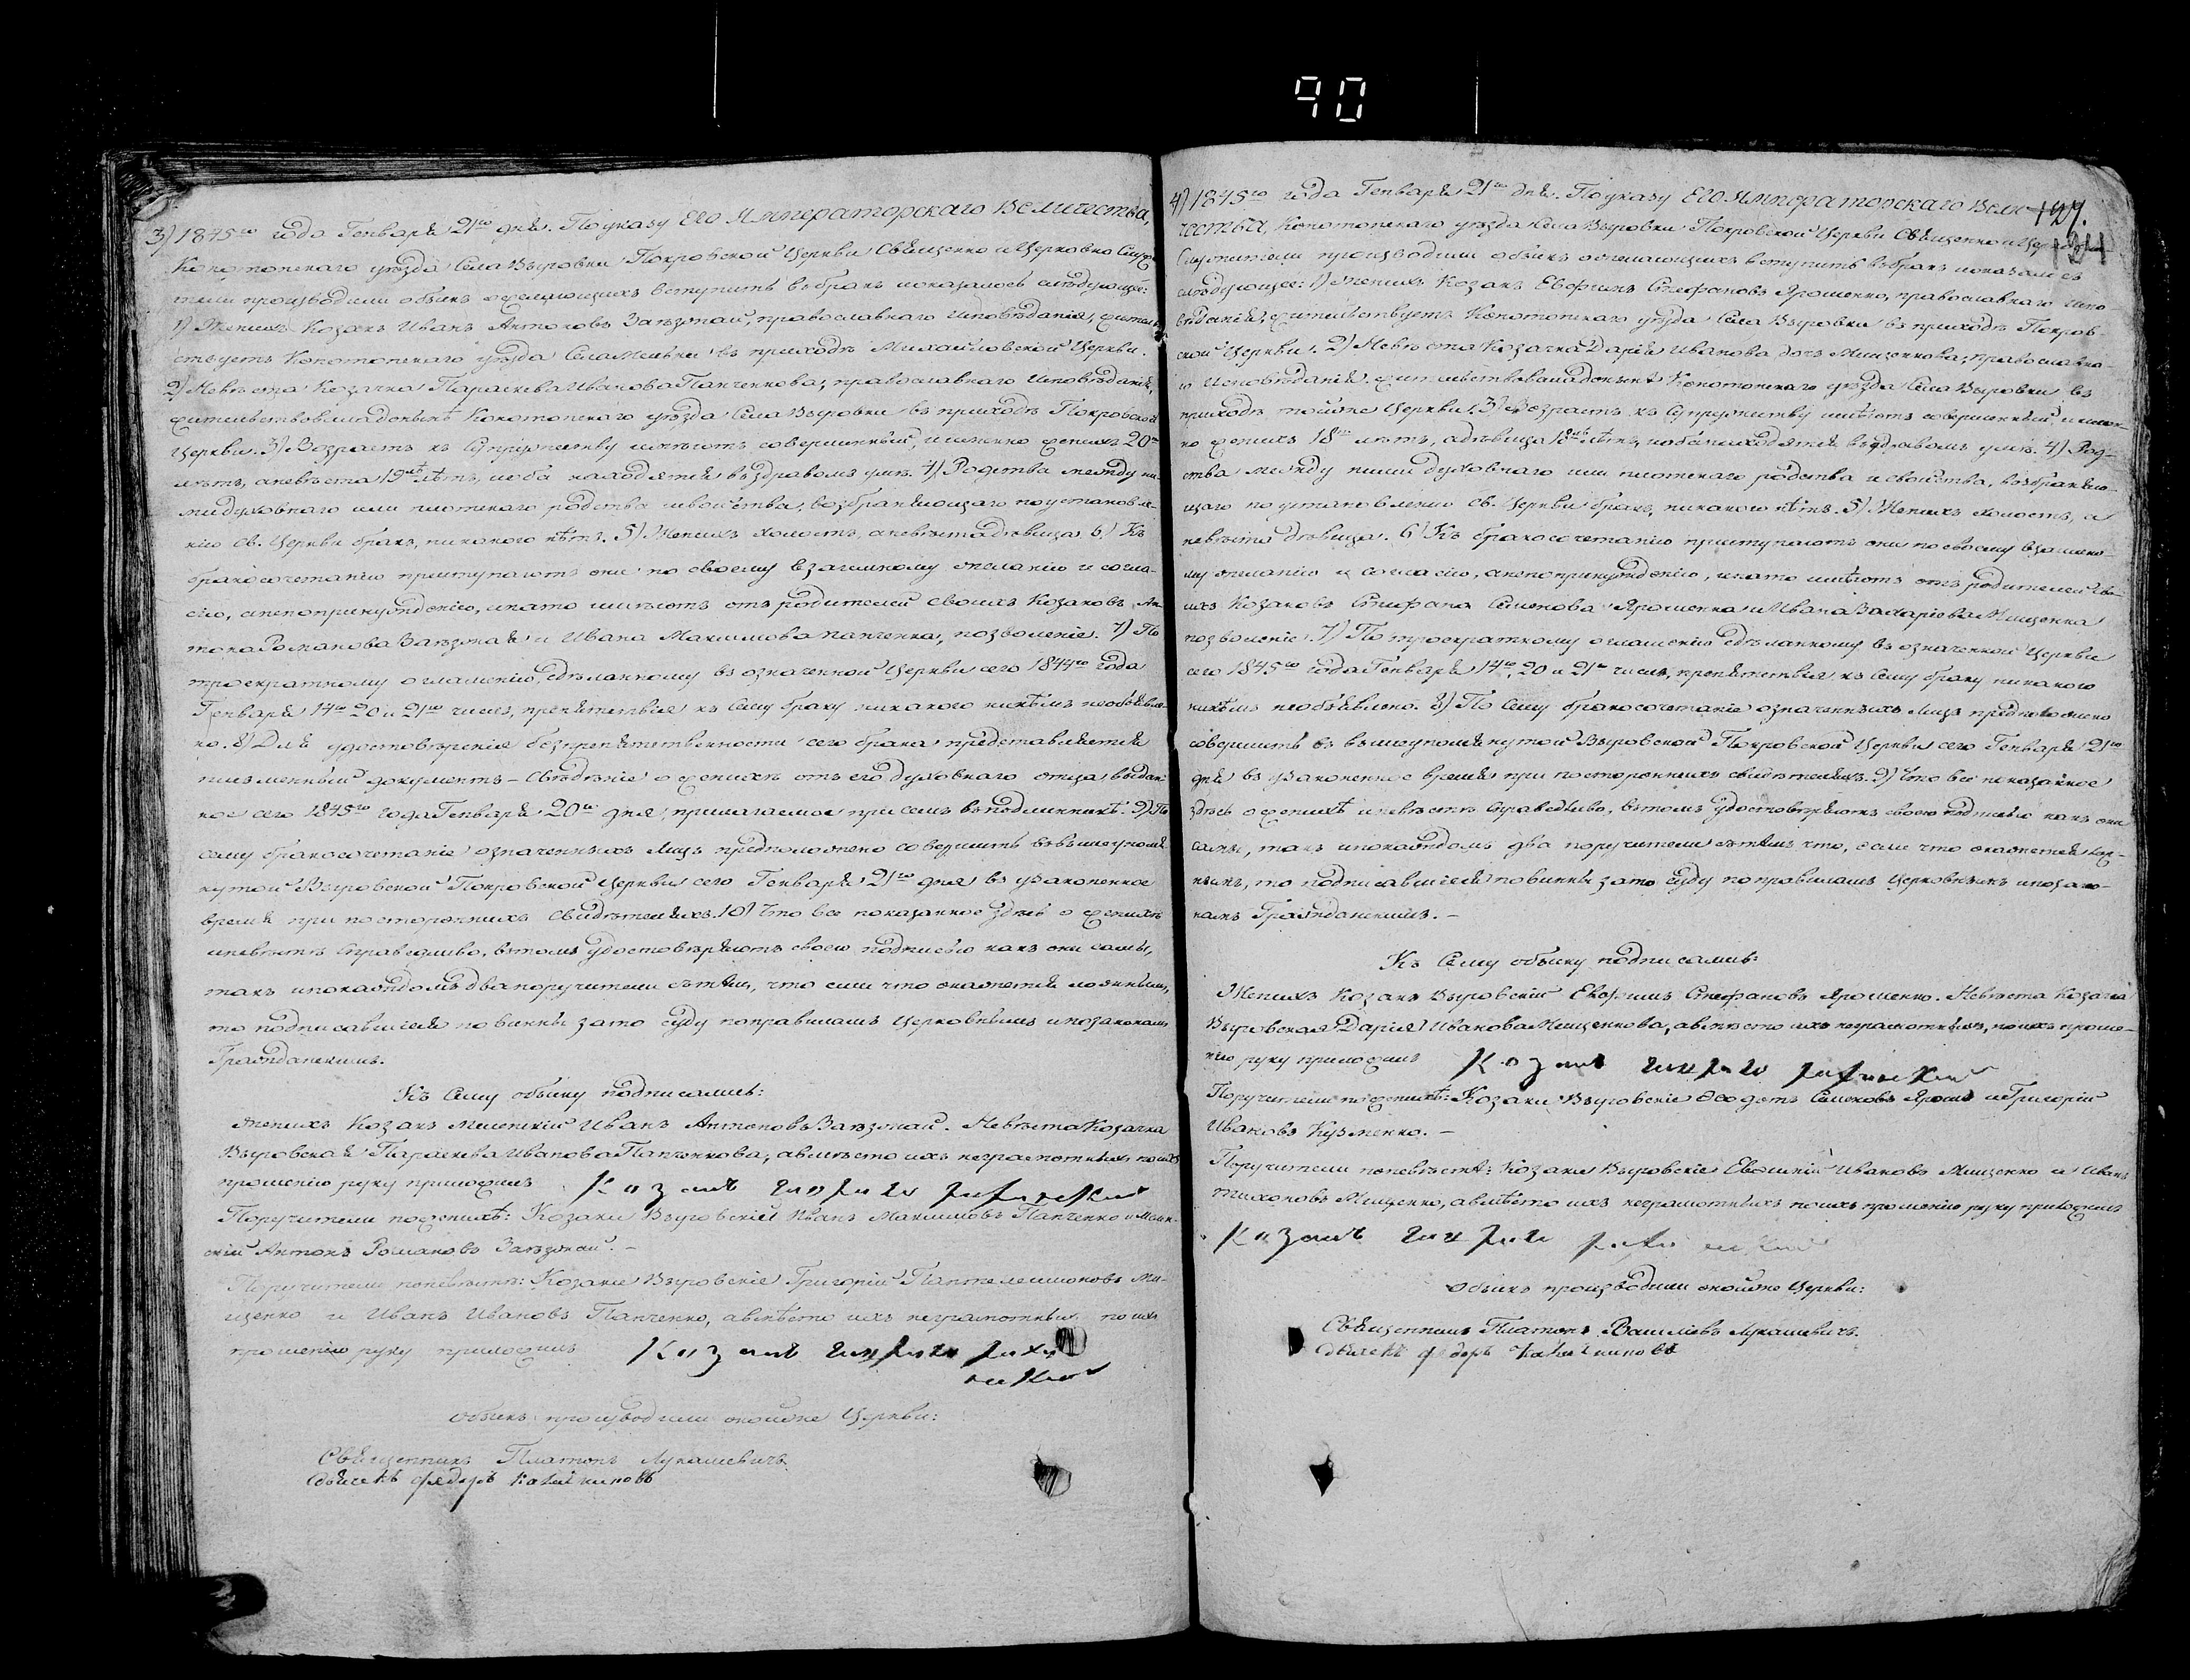 90
3) 1845го года Генваря 21го дня. По указу Его Императорскаго Величества,
Конотопскаго уѣзда Села Выровки Покровской Церкви Священно и Церковно Служи-
тели производили обыскъ о желающихъ вступить въ бракъ и оказалось слѣдующее:
1) Женихъ Козакъ Иванъ Антоновъ православнаго исповѣданія, жител-
ствуетъ Конотопскаго уѣзда Села въ приходѣ Михайловской Церкви.
2) Невѣста Козачка Параскева Иванова Панченкова, православнаго исповѣданія,
жителствовала донынѣ Конотопскаго уѣзда Села Выровки въ приходѣ Покровской
Церкви. 3) Возрастъ къ Супружеству имѣютъ совершенный, именно женихъ 20ть
лѣтъ, а невѣста 19ть лѣтъ, и оба находятся въ здравомъ умѣ. 4) Родства между ни-
ми духовнаго или плотскаго родства и свойства, возбраняющаго по установле-
нію св. Церкви бракъ, никакого нѣтъ. 5) Женихъ холостъ, а невѣста дѣвица. 6) Къ
бракосочетанію приступаютъ они по своему взаимному желанію и согла-
сію, а не по принужденію, и на то имѣютъ отъ родителей своихъ Козаковъ Ан-
тона Романова и Ивана Максимова Панченка, позволеніе. 7) По
троекратному оглашенію, сдѣланному въ означенной Церкви сего 1844го года
Генваря 14го 20 и 21го чиселъ, препятствія къ сему браку никакого никѣмъ необъявле-
но. 8) Для удостовѣренія безпрепятственности сего брака представляется
письменный документъ - свѣдѣніе о женихѣ отъ его духовнаго отца выдан-
ное сего 1845го года Генваря 20го дня, прилагаемое при семъ въ подлинникѣ. 9) По
сему бракосочетаніе означенныхъ лицъ предположено совершить въ вышеупомя-
нутой Выровской Покровской Церкви сего Генваря 21го дня въ узаконенное
время при постороннихъ свидѣтеляхъ. 10) Что все показанное здѣсь о женихѣ
и невѣстѣ справедливо, въ томъ удостовѣряютъ своею подписью какъ они сами,
такъ и по каждомъ два поручители съ тѣмъ, что если что окажется ложнымъ,
то подписавшіеся повинны за то суду по правиламъ Церковнымъ и по законамъ
Гражданскимъ.
Къ Сему обыску подписались:
Женихъ Козакъ Иванъ Антоновъ Невѣста Козачка
Выровская Параскева Иванова Панченкова, а вмѣсто ихъ неграмотныхъ по ихъ
прошенію руку приложилъ Козакъ
Поручители по женихѣ: Козаки Выровскій Иванъ Максимовъ Панченко и
Антонъ Романовъ
Поручители по невѣстѣ: Козаки Выровскіе Григорій Пантелеимоновъ Ми-
щенко и Иванъ Ивановъ Панченко, а вмѣсто ихъ неграмотныхъ по ихъ
прошенію руку приложилъ Козакъ
Обыскъ производили онойже Церкви:
Священникъ Платонъ Лукашевичъ
Дьячекъ Федоръ
127.
134
4) 1845го года Генваря 21го дня. По указу Его Императорскаго Вели-
чества, Конотопскаго уѣзда Села Выровки Покровской Церкви Священно и Церковно
Служители производили обыскъ о желающихъ вступить въ бракъ и оказалось
слѣдующее: 1) Женихъ Козакъ Евфимъ Стефановъ Ярошенко, православнаго испо-
вѣданія, жителствуетъ Конотопскаго уѣзда Села Выровки въ приходѣ Покров-
ской Церкви. 2) Невѣста Козачка Дарія Иванова дочь Мищенкова, православна-
го исповѣданія, жителствовала донынѣ Конотопскаго уѣзда Села Выровки въ
приходѣ тойже Церкви. 3) Возрастъ къ Супружеству имѣютъ совершенный, имен-
но женихъ 18ть лѣтъ, а дѣвица 18ть лѣтъ, и оба находятся въ здравомъ умѣ. 4) Род-
ства между ними духовнаго или плотскаго родства и свойства, возбраняю-
щаго по установленію св. Церкви бракъ, никакого нѣтъ. 5) Женихъ холостъ, а
невѣста дѣвица. 6) Къ бракосочетанію приступаютъ они по своему взаимно-
му желанію и согласію, а не по принужденію, и на то имѣютъ отъ родителей сво-
ихъ Козаковъ Стефана Семенова Ярошенка и Ивана Захаріева Мищенка
позволеніе. 7) По троекратному оглашенію сдѣланному въ означенной Церкви
сего 1845го года Генваря 14го, 20 и 21го чиселъ, препятствія къ сему браку никакого
никѣмъ необъявлено. 8) По сему бракосочетаніе означенныхъ лицъ предположено
совершить въ вышеупомянутой Выровской Покровской Церкви сего Генваря 21го
дня въ узаконенное время при постороннихъ свидѣтеляхъ. 9) Что все показанное
здѣсь о женихѣ и невѣстѣ справедливо, въ томъ удостовѣряютъ своею подписью какъ они
сами, такъ и по каждомъ два поручители съ тѣмъ что, если что окажется лож-
нымъ, то подписавшіеся повинны за то суду по правиламъ Церковнымъ и по зако-
намъ Гражданскимъ. -
Къ Сему обыску подписались:
Женихъ Козакъ Выровскій Евфимъ Стефановъ Ярошенко. Невѣста Козачка
Выровская Дарія Иванова Мищенкова, а вмѣсто ихъ неграмотныхъ, по ихъ проше-
нію руку приложилъ Козакъ
Поручители по женихѣ: Козаки Выровскіе Ѳеодотъ Семеновъ Ярошъ и Григорій
Ивановъ Кузменко. -
Поручители по невѣстѣ: Козаки Выровскіе Ивановъ Мищенко и Иванъ
Тихоновъ Мищенко, а вмѣсто ихъ неграмотныхъ по ихъ прошенію руку приложилъ
Козакъ
Обыскъ производили онойже Церкви:
Священникъ Платонъ Василіевъ Лукашевичъ.
Дьячекъ Федоръ